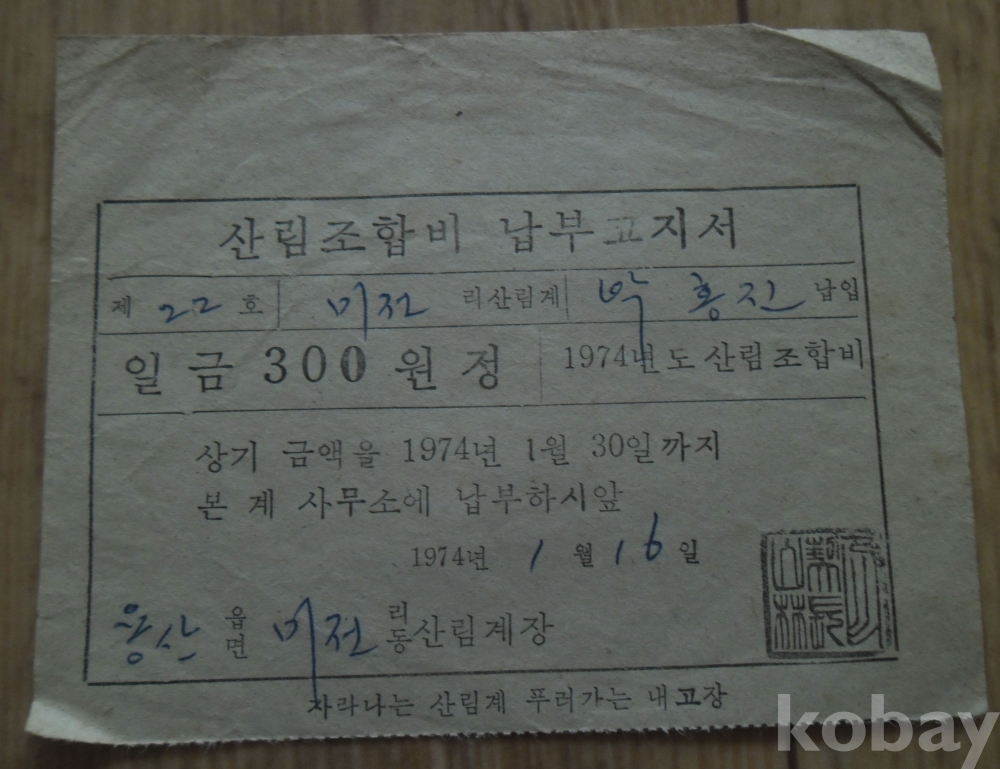 산림조합비 납부고지서
제 22 호 미전 리산림계 박홍진 납입
일금 300 원정 1974년도 산림조합비
상기 금액을 1974년 1월 30일까지
본 계 사무소에 납부하시앞
1974년 1 월 16 일
용산 읍면 미전 리동 산림계장
자라나는 산림계 푸러가는 내고장
kobay